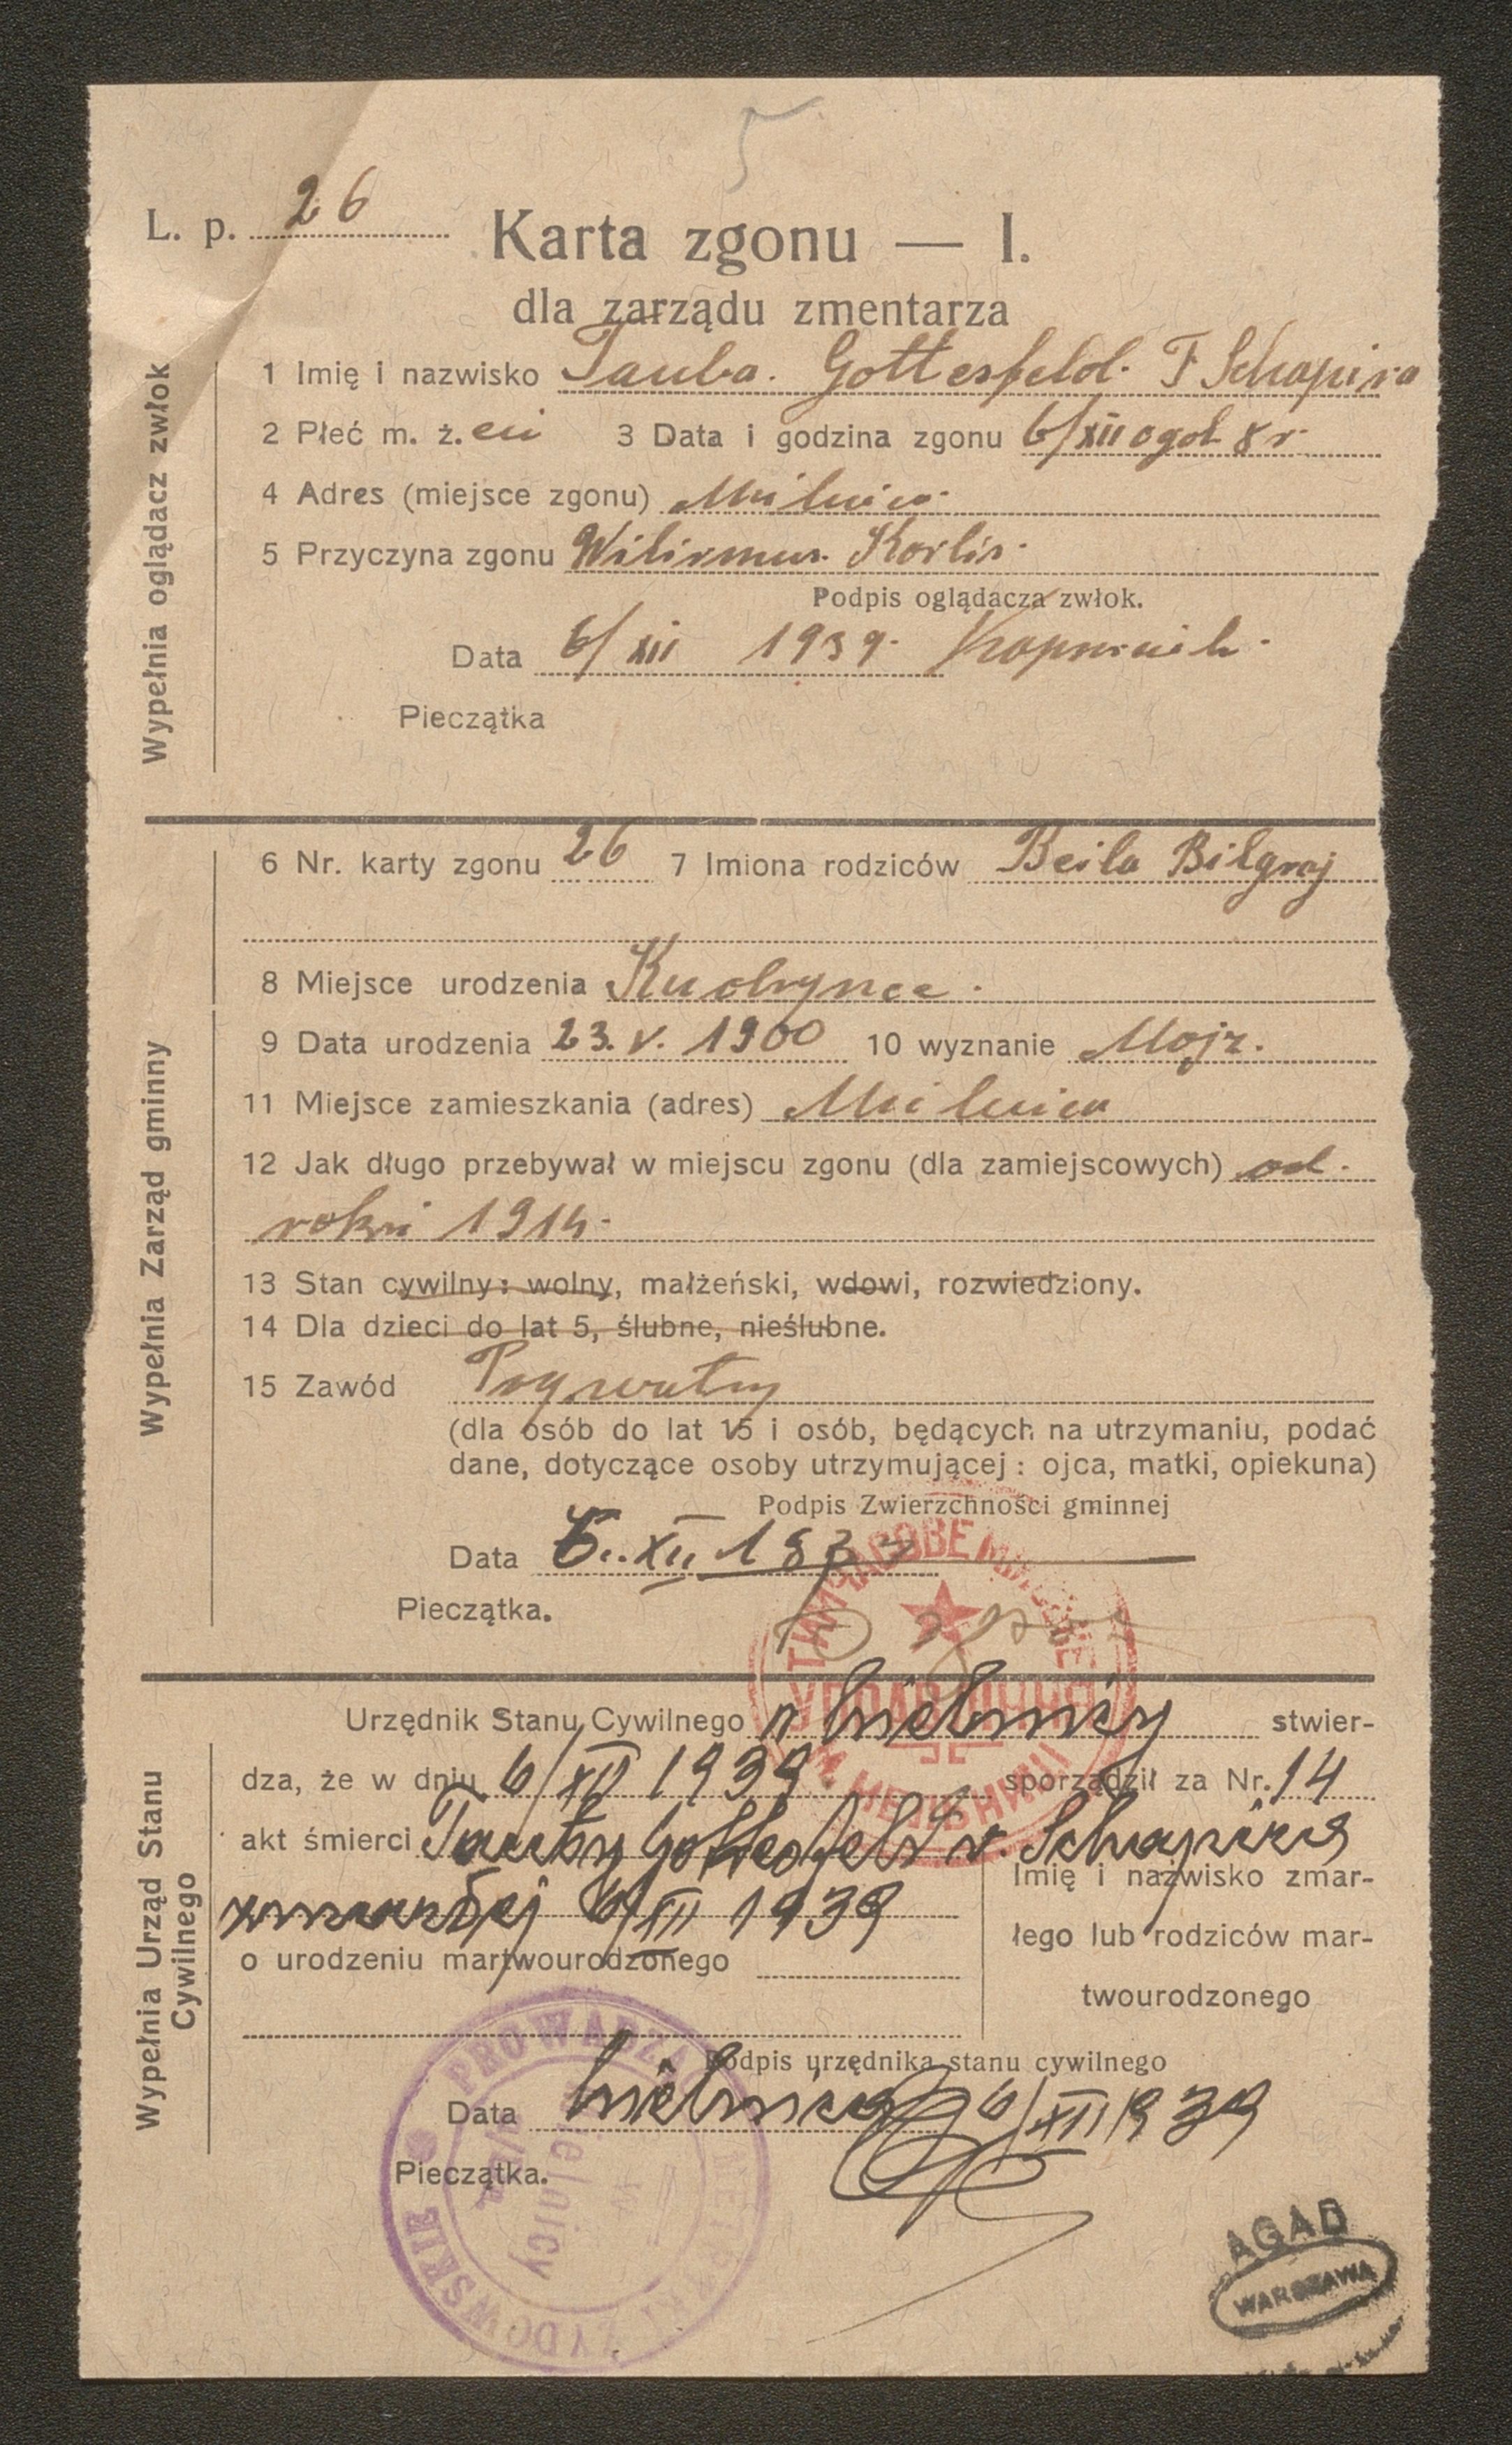 5
L. p. 26
Karta zgonu — I.
dla zarządu zmentarza
Wypełnia oglądacz zwłok
1 Imię i nazwisko Tauba. Gottesfeld. F Schapira
2 Płeć m. ż. 3 Data i godzina zgonu 6/XII o god 8 r.
4 Adres (miejsce zgonu) Mielnica.
5 Przyczyna zgonu
Podpis oglądacza zwłok.
Data 6/XII 1939.
Pieczątka
Wypełnia Zarząd gminny
6 Nr. karty zgonu 26 7 Imiona rodziców Beila Bilgraj
8 Miejsce urodzenia Kudrynce.
9 Data urodzenia 23. V. 1900 10 wyznanie Mojż.
11 Miejsce zamieszkania (adres) Mielnica
12 Jak długo przebywał w miejscu zgonu (dla zamiejscowych) od
roku 1914.
13 Stan cywilny: wolny, małżeński, wdowi, rozwiedziony.
14 Dla dzieci do lat 5, ślubne, nieślubne.
15 Zawód Prywatny
(dla osób do lat 15 i osób, będących na utrzymaniu, podać
dane, dotyczące osoby utrzymującej: ojca, matki, opiekuna)
Podpis Zwierzchności gminnej
Data 6. XII 1939
Pieczątka.
ТИМЧАСОВЕ МІСЬКЕ
УПРАВЛІННЯ
М. МЕЛЬНИЦІ
Wypełnia Urząd Stanu
Cywilnego
Urzędnik Stanu Cywilnego w Mielnicy stwier-
dza, że w dniu 6/XII 1939. sporządził za Nr. 14
akt śmierci Tauby Gottesfeld v. Schapira
zmarłej 6/XII 1939
Imię i nazwisko zmar-
łego lub rodziców mar-
twourodzonego
o urodzeniu martwourodzonego
Podpis urzędnika stanu cywilnego
Data Mielnica 6/XII 1939
Pieczątka.
PROWADZĄCY METRYKI ŻYDOWSKIE
w
Mielnicy
AGAD
WARSZAWA